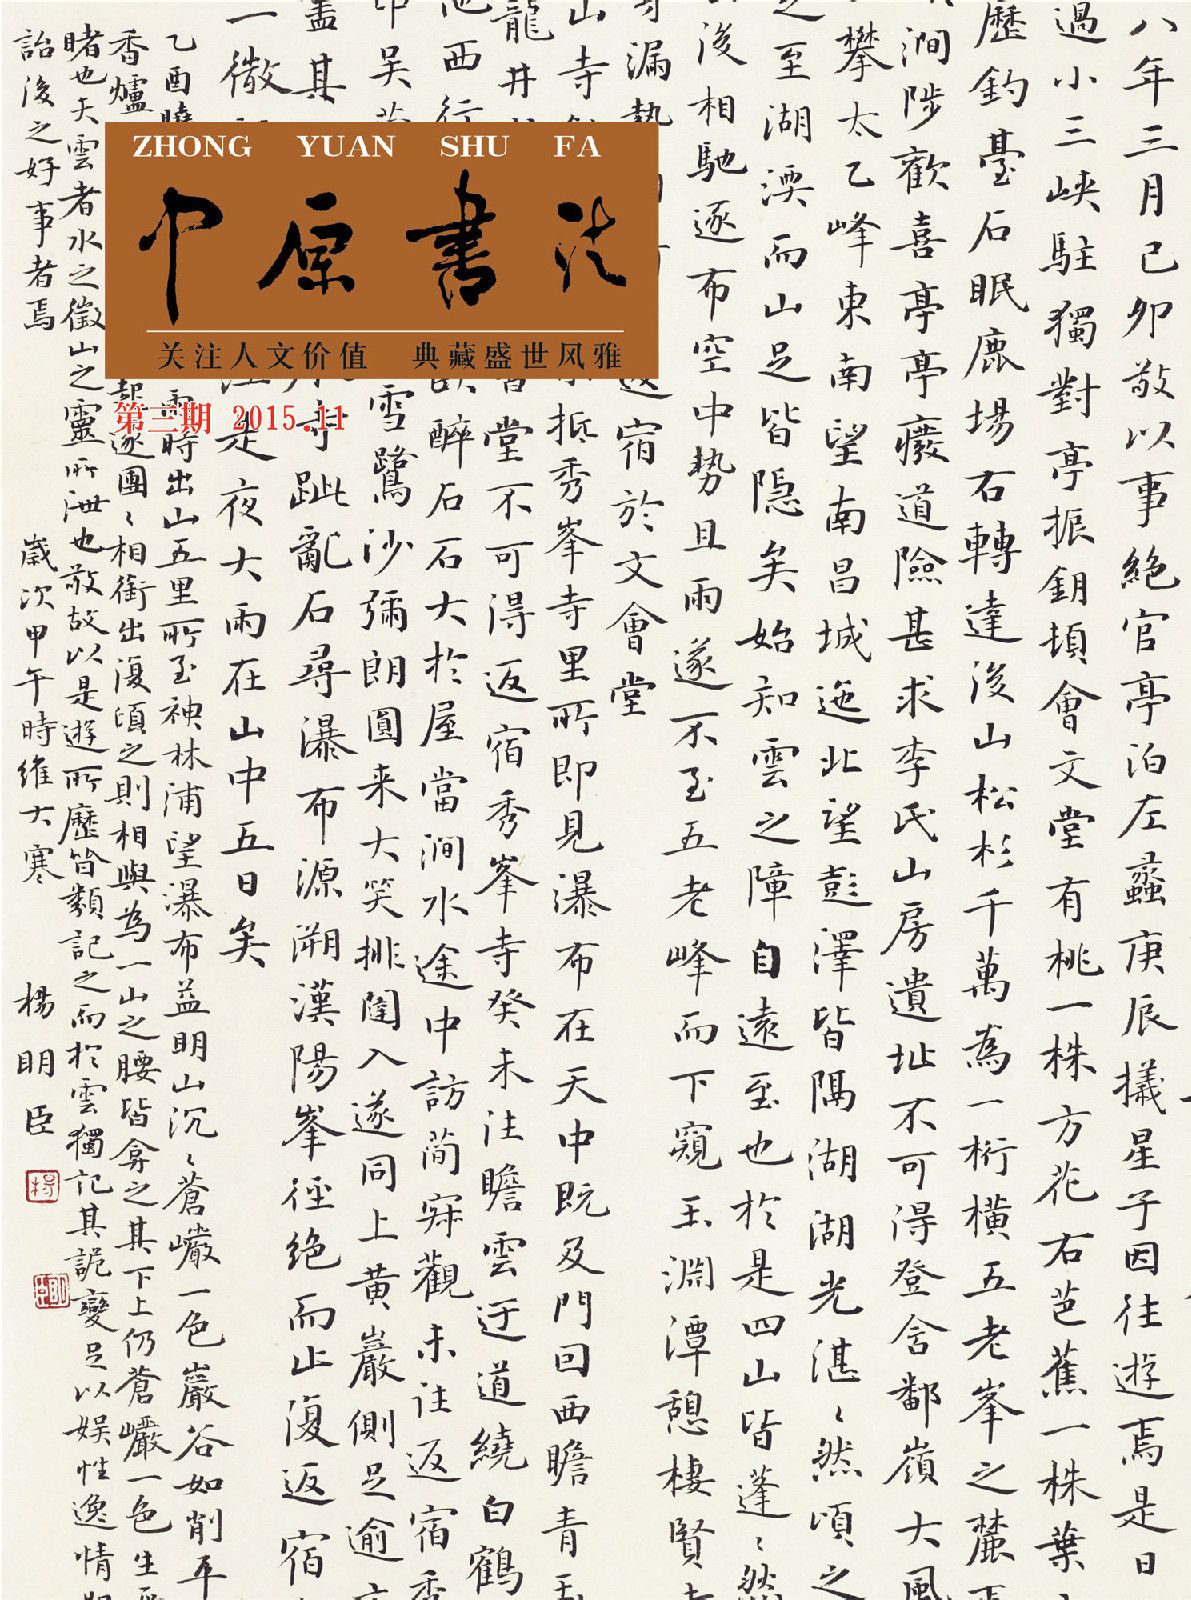 ZHONG YUAN SHU FA
中原书法
关注人文价值 典藏盛世风雅
第三期 2015.11
八年三月己卯敬以事绝官亭泊左蠡庚辰檥星子因往遊焉是日
過小三峽駐獨對亭振鈅頓會文堂有桃一株方花右芭蕉一株葉
歷釣臺石眠鹿場右轉達後山松杉千萬為一桁橫五老峯之麓焉
澗陟歡喜亭亭癈道險甚求李氏山房遺址不可得登含鄱嶺大風
攀太乙峰東南望南昌城迤北望彭澤皆隔湖湖光湛〻然頃之
之至湖而山足皆隐矣始知雲之障自遠至也於是四山皆蓬〻然
後相馳逐布空中勢且雨遂不至五老峰而下窺玉淵潭憩棲賢寺
漏勢 返宿於文會堂
山寺 抵秀峯寺里所即見瀑布在天中既及門因西瞻青玉
龍井 堂不可得返宿秀峯寺癸未往瞻雲迂道繞白鶴
西行 醉石石大於屋當澗水途中訪蕳寂觀未往返宿秀
吴 雪鷺沙彌朗圓来大笑排闥入遂同上黄巖側足逾
盖其 寺趾亂石尋瀑布源溯漢陽峯径绝而止復返宿
一微 走夜大雨在山中五日矣
乙酉曉 雨時出山五里所至神林浦望瀑布益明山沉〻蒼巖一色巖谷如削平
香爐 逐團〻相銜出復頃之則相與為一山之腰皆弇之其下上仍蒼巖一色生
睹也夫雲者水之徵山之靈所洩也敬故以是遊所歷皆類記之而於雲獨记其詭變足以娱性逸情
詒後之好事者焉 歲次甲午時維大寒 楊明臣